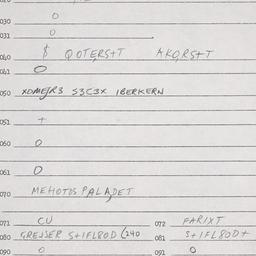 030 0
031 0
040 $ QOTERS+T AKQRS+T
041 0
050 XOMEJR3 S3C3X IBERKERN
051 +
060 0
061 0
070 MEHOTOS PALADET
071 CU 072 FARIXT
080 GREJSER S+IFL80D (240 081 S+IFL80D+
090 0 091 0